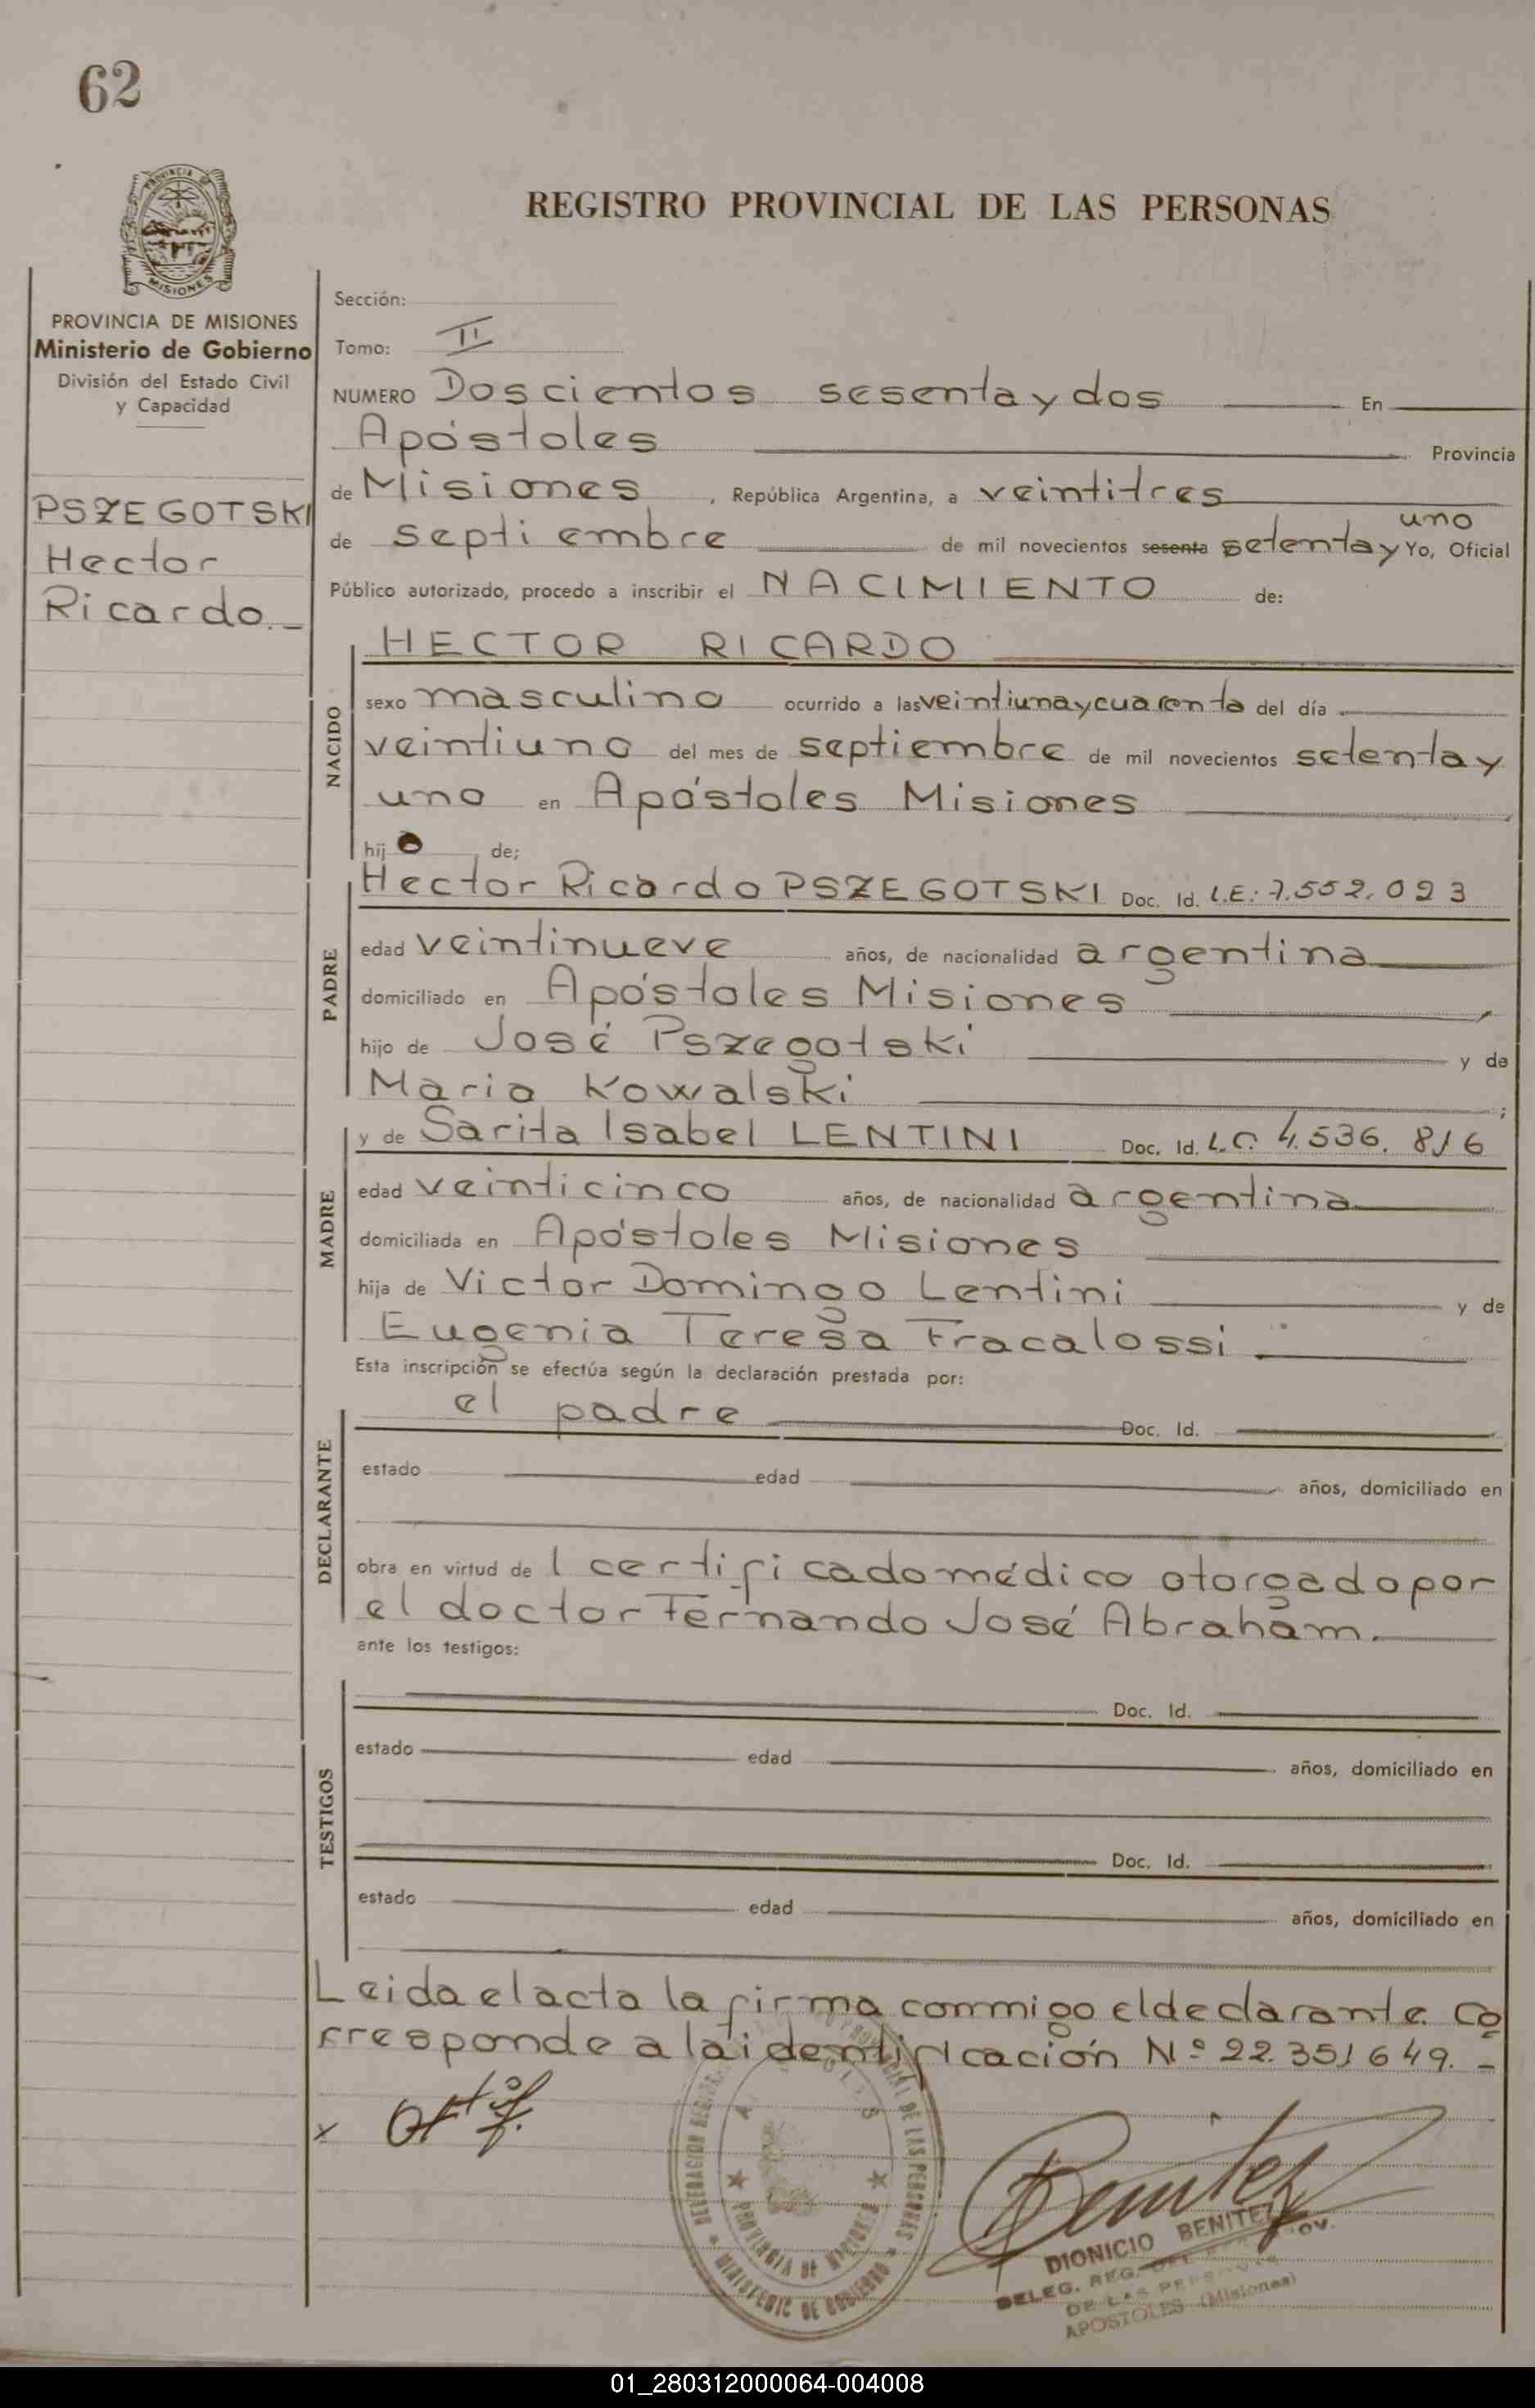 62
PROVINCIA DE
MISIONES
REGISTRO PROVINCIAL DE LAS PERSONAS
PROVINCIA DE MISIONES
Ministerio de Gobierno
División del Estado Civil
y Capacidad
PSZEGOTSKI
Hector
Ricardo.-
Sección:
Tomo: II
NUMERO Doscientos sesenta y dos En
Apóstoles Provincia
de Misiones, República Argentina, a veintitres
de septiembre de mil novecientos sesenta setenta y uno Yo, Oficial
Público autorizado, procedo a inscribir el NACIMIENTO de:
NACIDO
HECTOR RICARDO
sexo masculino ocurrido a las veintiuna y cuarenta del día
veintiuno del mes de septiembre de mil novecientos setenta y
uno en Apóstoles Misiones
hijo de;
PADRE
Hector Ricardo PSZEGOTSKI Doc. Id. L.E: 7.552.023
edad veintinueve años, de nacionalidad argentina
domiciliado en Apóstoles Misiones
hijo de José Pszegotski y de
Maria Kowalski ;
MADRE
y de Sarita Isabel LENTINI Doc. Id. L.C. 4.536.816
edad veinticinco años, de nacionalidad argentina
domiciliada en Apóstoles Misiones
hija de Victor Domingo Lentini y de
Eugenia Teresa Fracalossi.
Esta inscripción se efectúa según la declaración prestada por:
DECLARANTE
el padre Doc. Id.
estado edad años, domiciliado en
obra en virtud de l certificado médico otorgado por
el doctor Fernando José Abraham.
ante los testigos:
TESTIGOS
Doc. Id.
estado edad años, domiciliado en
Doc. Id.
estado edad años, domiciliado en
Leida el acta la firma conmigo el declarante. Co
rresponde a la identificación Nº 22.351649.-
x
PROVINCIA DE MISIONES
MINISTERIO DE GOBIERNO
Benitez
DIONICIO BENITEZ
DELEG. REG. DEL REG. PROV.
DE LAS PERSONAS
APOSTOLES (Misiones)
01_280312000064-004008